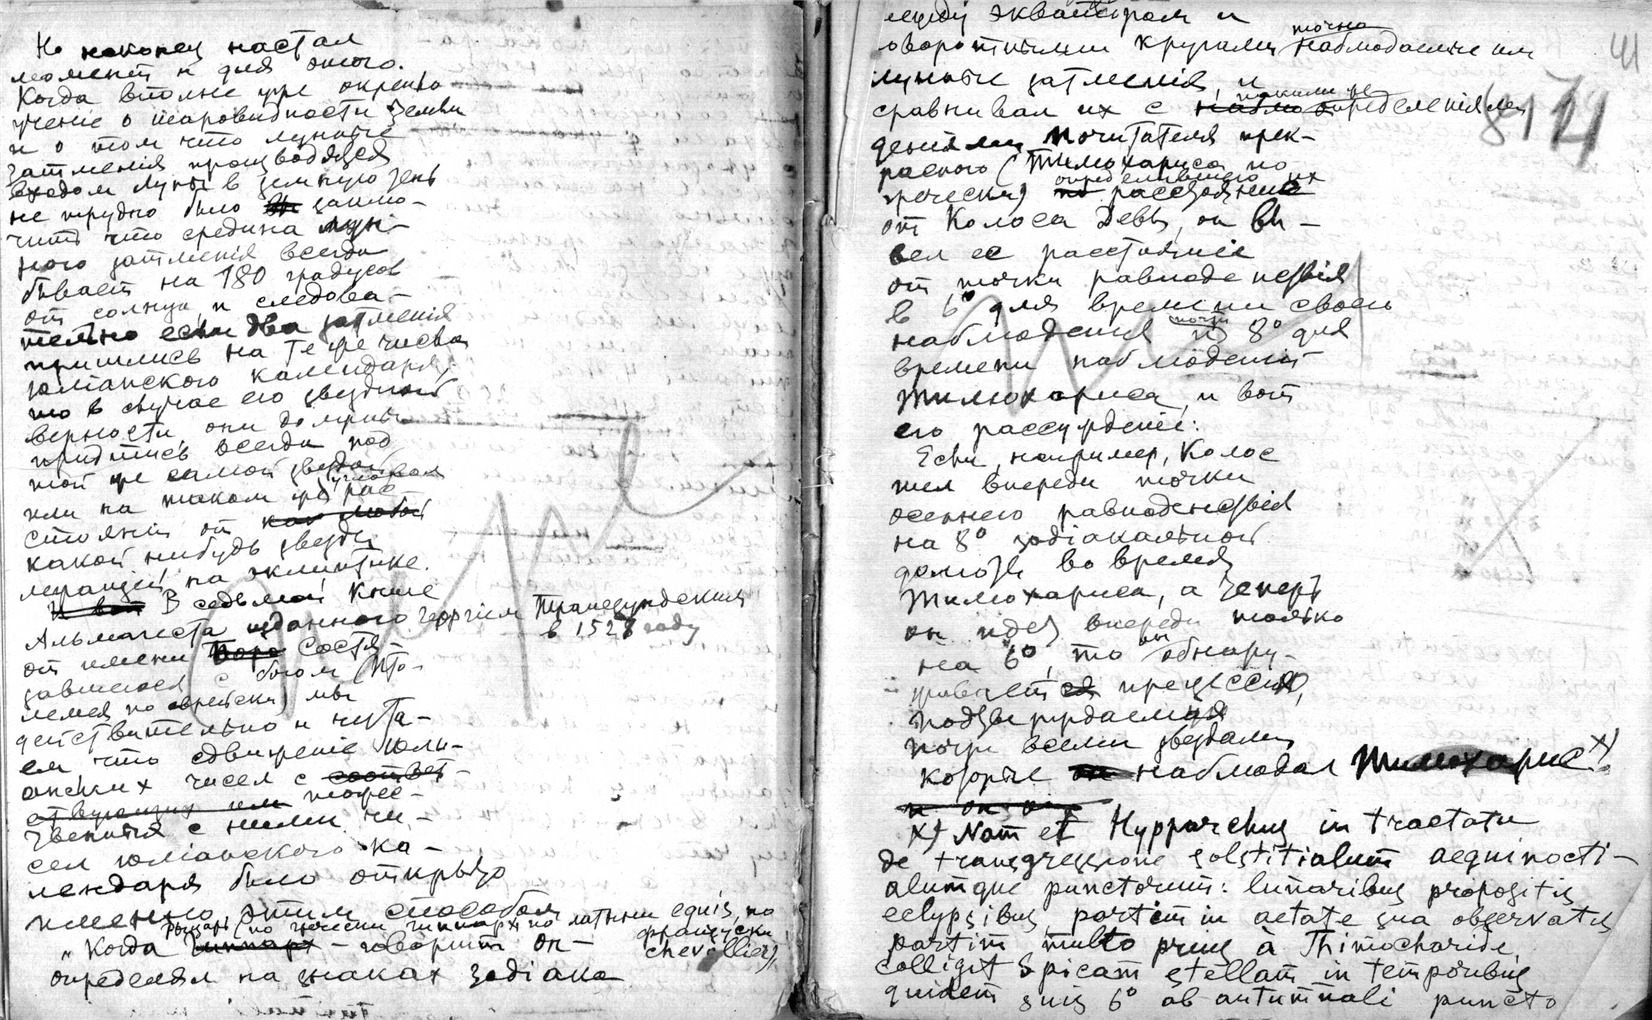 Но наконец настал
момент и для этого.
Когда вполне уже окрепло
учение о шаровидности Земли
и о том что лунные
затмения производятся
входом луны в земную тень
не трудно было заклю-
чить что средина лун-
ного затмения всегда
бывает на 180 градусов
от солнца, и следова-
тельно если два затмения
пришлись на те же числа
юлианского календаря,
то в случае его звездной
верности, они должны
придтись всегда под
той же самой звездой
или на таком же угловом рас-
стоянии от
какой нибудь звезды
лежащей на эклиптике.
В седьмой книге
Альмагеста изданного Георгием Трапезундским
в 1528 году
от имени состя-
завшегося с богом (Пто-
лемея по еврейски) мы
действительно и чита-
ем что сдвижение юли-
анских чисел с соответ-
ствующих им тожес-
твенных с ними чи-
сел юлианского ка-
лендаря было открыто
именно этим способом
„Когда рыцарь (по гречески гиппарх по латыни equis, по
французски chevallier),
– говорит он –
определял на знаках зодиака
между экватором и
оворотными кругами точно наблюдаемые им
лунные затмения, и
сравнивал их с определениям
дениями почитателя прек-
расного (Тимохариса по
гречески) определившего их расстояние
от Колоса Девы, он вы-
вел ее расстояние
от точки равноденствия
в 6° для времени своего
наблюдения и почти 8° для
времени наблюдений
Тимохариса, и вот
его рассуждение:
Если, например, Колос
шел впереди точки
осеннего равноденствия
на 8° зодиакальной
долготы во время
Тимохариса, а теперь
он идет впереди только
на 6°, то бы обнару-
живает прецессия,
подтверждаемая
почти всеми звездами
которые наблюдал Тимохарис x)
x) Nam et Hypparchus in tractatu
de transgressione solstitialum aequinocti-
alumque punctorum: lunaribus propositis
eclypsibus, partim in aetate sua observatis
partim multo prius à Thimocharide,
colligit Spicam stellam in temporibus
quidem suis 6° ab autumnali puncto
41